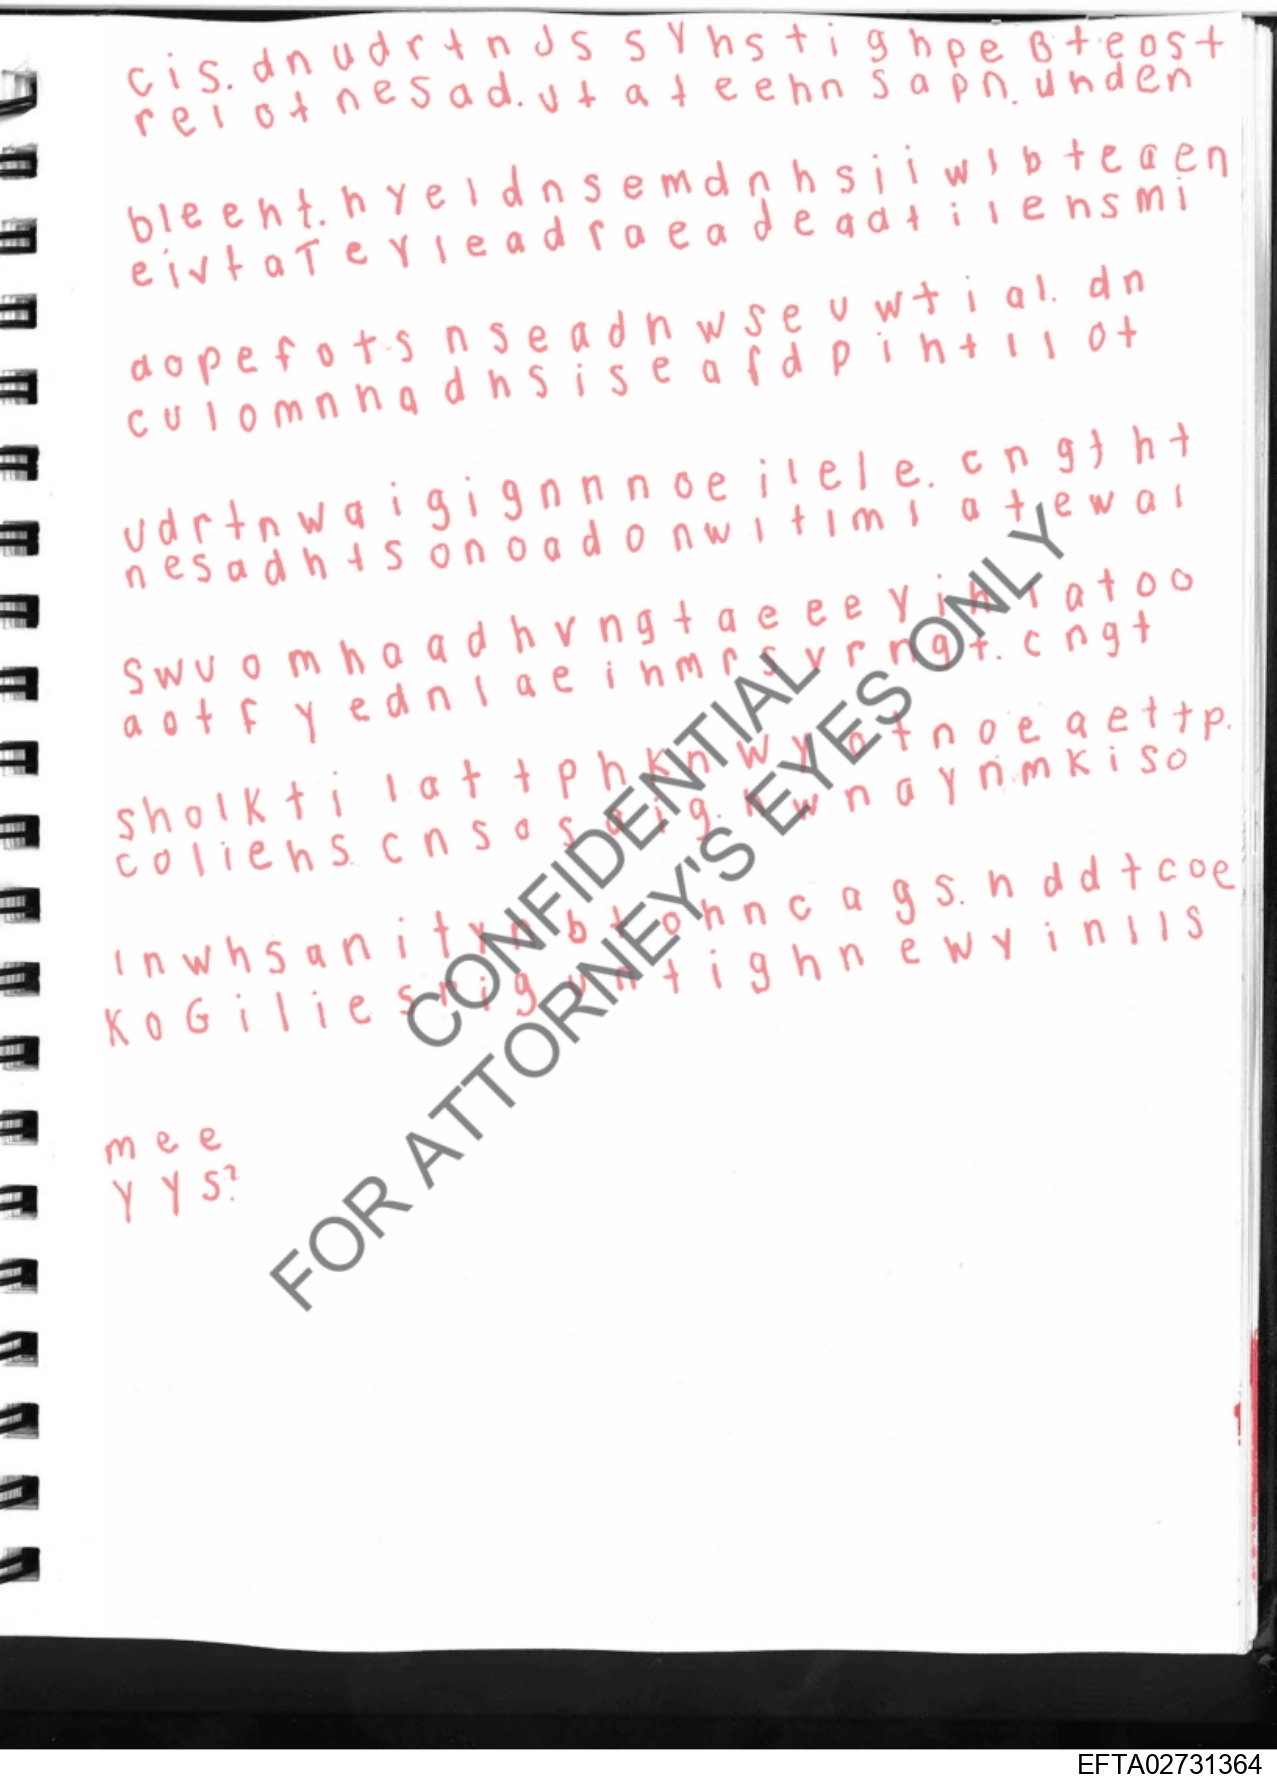 cis. dnudrtnds syhstighpe Bteost
relotnesad. utateehnsapn. unden
bleent. hyeldnsemdnhsiiwlbteaen
eivtaTeyleadraeadeadtilensmi
aopefotsnseadnwseuwtial. dn
culomnnadhsiseafdpihtllot
udrtnwaigignnnoeilele. cngtht
nesadhtsonoadonwitlmlatewal
swuomhaadhvngtaeeey
aotfyednlaeihmrsvrngt. cngt
sholktilattphknwyotnoeaettp.
coliehs. cnsos
lnwhsanit
KoGiliesrig
mee
yys?
CONFIDENTIAL
FOR ATTORNEY'S EYES ONLY
EFTA02731364